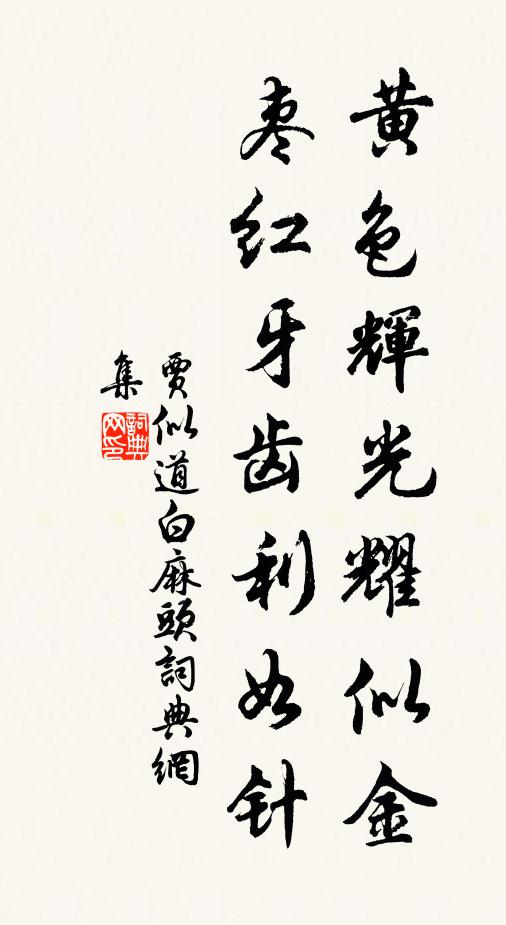 黄色輝光耀似金
枣红牙齿利如针
賈似道白麻頭詞典網
集
詞典
网印